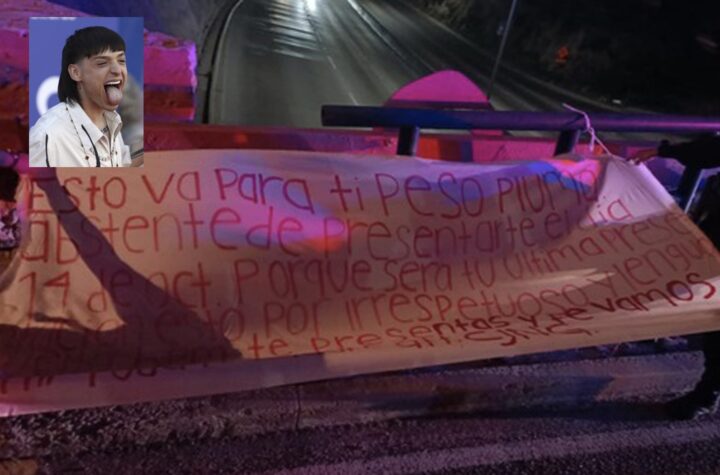 Esto va para ti Peso Pluma
abstente de presentarte el día
14 de oct. Porque sera tu ultima prese
esto por irrespetuoso y lengu
te presentas y te vamos